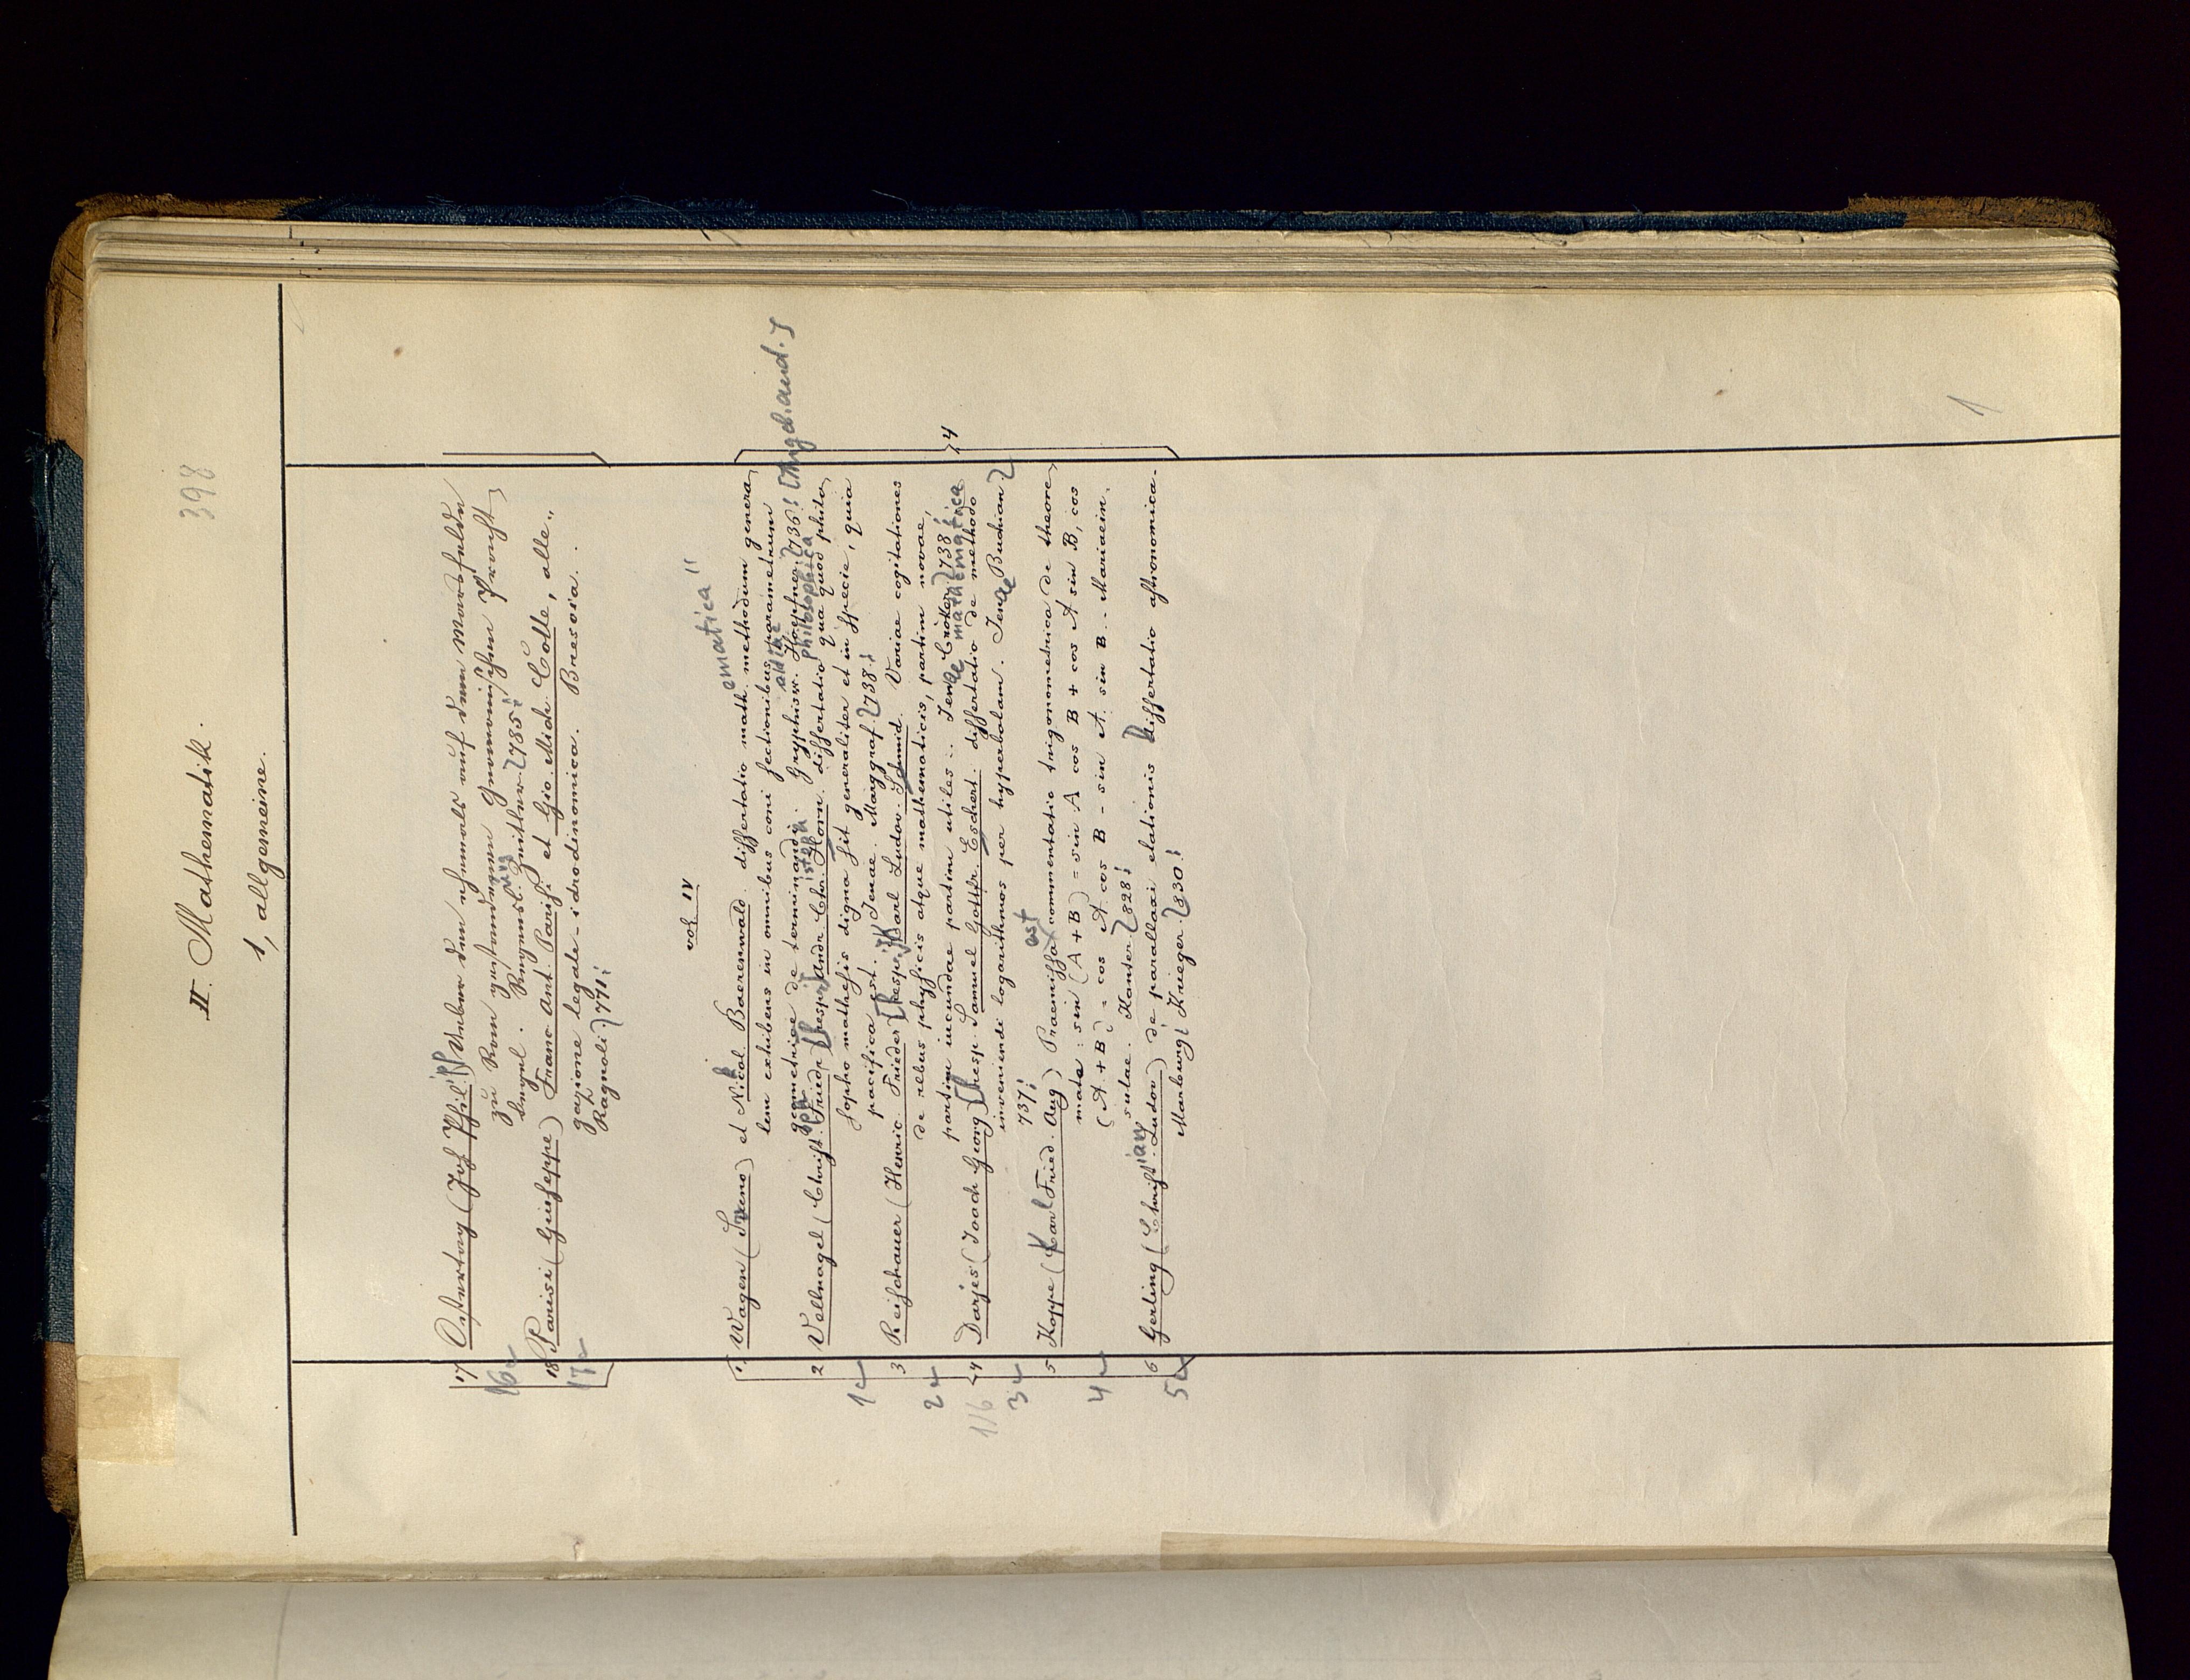 398
II. Mathematik.
1, allgemeine.
17 Ostertag (Joh. Phil.) Ueber den ehemals auf dem Marsfelde
zu Rom gestandenen Gnomonischen Pracht
kegel. Regensb. Zeitler 785.
16
18 Parisi (Giuseppe) Franc. Ant. Parisi et Gio. Mich. Colle, alle„
gazione legale-idrodinomica. Brescia.
Ragnoli 771.
17
vol. IV
ematica"
1, Wagen (Sveno) et Nicol. Baerenwald. dissertatio math. methodum genera
lem exhibens in omnibus coni sectionibus parametrum
geometrice de terminandi. Gryphisw. Hoepfner 736!
2 Vellnagel (Christ. Friedr.) resp. Andr. Chr. Horn. dissertatio qua quod philo
philosophica
sopho mathesis digna sit generaliter et in specie, quia
pacifica est. Jenae. Marggraf. 738!
1
3 Reischauer (Henric Frieder) resp. Karl Ludov. Schmid. Variae cogitationes
de rebus physicis atque mathematicis, partim novae,
partim iucundae partim utiles. Jenae Cröker 738!
2
mathematica
4 Darjes (Joach Georg) resp. Samuel Gottfr. Eschert. dissertatio de methodo
inveniendi logarithmos per hyperbolam. Jenae Buchian
737!
3
116
est
5 Koppe (Karl Fried. Aug) Praemissa commentatio trigonometrica de theore
mate: sin (A + B) = sin A cos B + cos A sin B, cos
(A + B) = cos A cos B - sin A. sin B. Mariaein.
sulae. Kanter 828!
4
6 Gerling (Christ. Ludov) de parallaxi elationis Dissertatio astronomica.
ian
Marburgi Krieger 830!
5
4
1